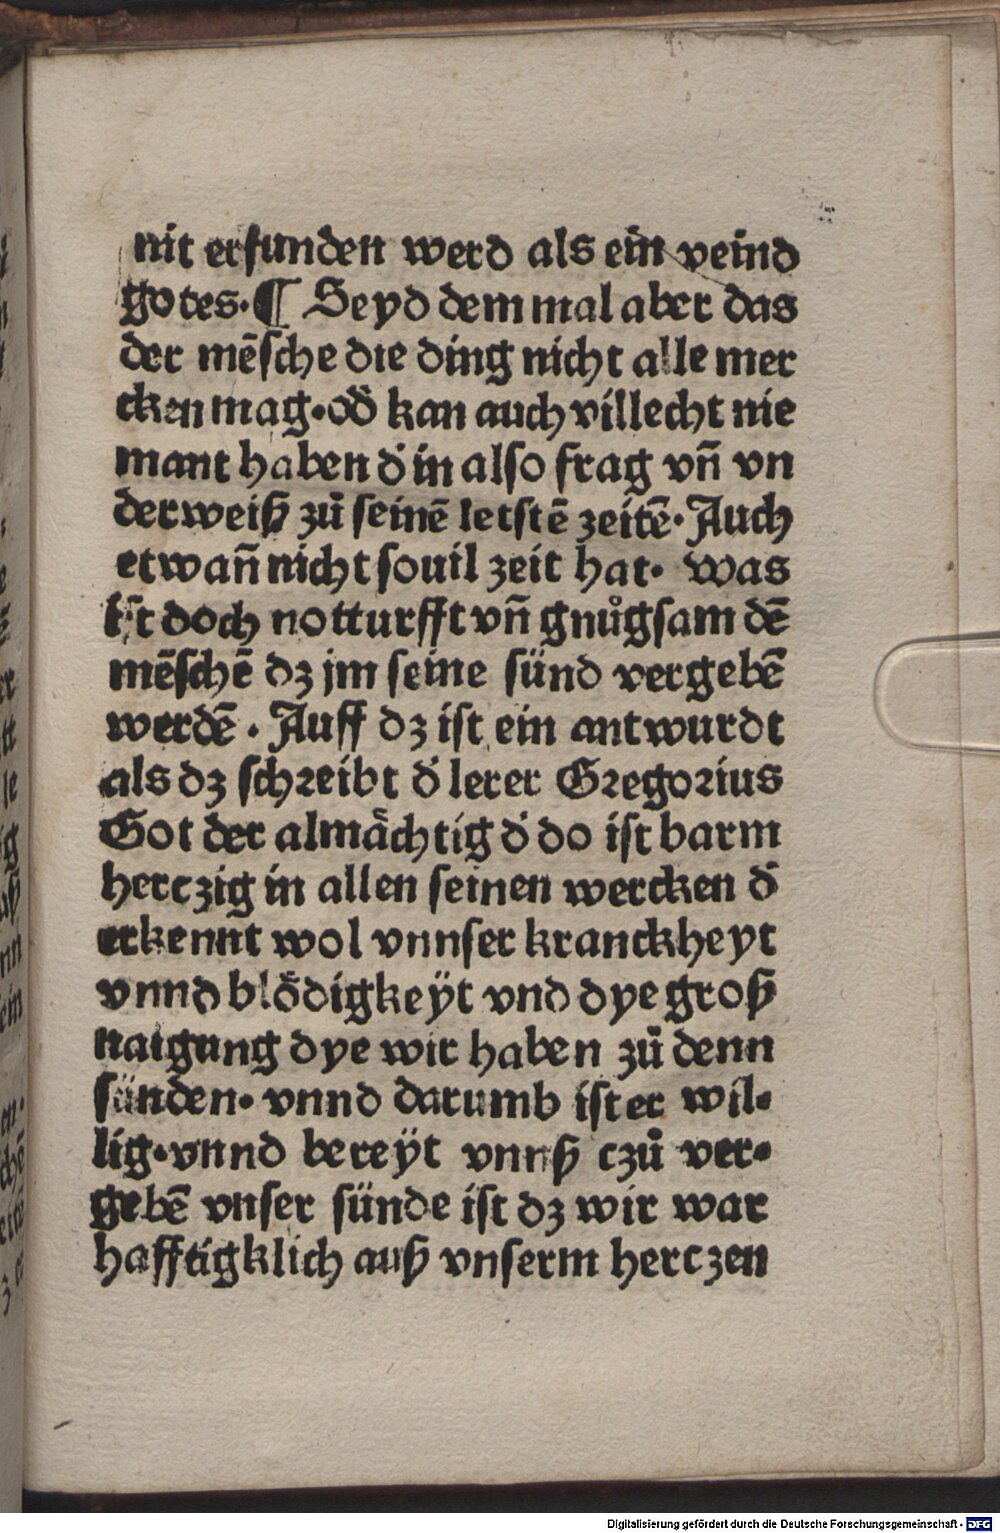 nit erfunden werd als ein veind
gotes·¶ Seyd dem mal aber das
der mēsche die ding nicht alle mer
cken mag·od̕ kan auch villecht nie
mant haben d̕ in also frag vn̄ vn
derweiß zů seinē letstē zeitē· Auch
etwan̄ nicht souil zeit hat· was
ist doch notturfft vn̄ gnůgsam dē
mēschē dz jm seine sünd vergebē
werdē· Auff dz ist ein antwurdt
als dz schreibt d̕ lerer Gregorius
Got der almächtig d̕ do ist barm
herczig in allen seinen wercken d̕
erkennt wol vnnser kranckheyt
vnnd blödigkeÿt vnd dye groß
naigung dye wir haben zů denn
sünden· vnnd darumb ist er wil-
lig·vnnd bereÿt vnnß czů ver-
gebē vnser sünde ist dz wir war
hafftigklich auß vnserm herczen
Digitalisierung gefördert durch die Deutsche Forschungsgemeinschaft - DFG